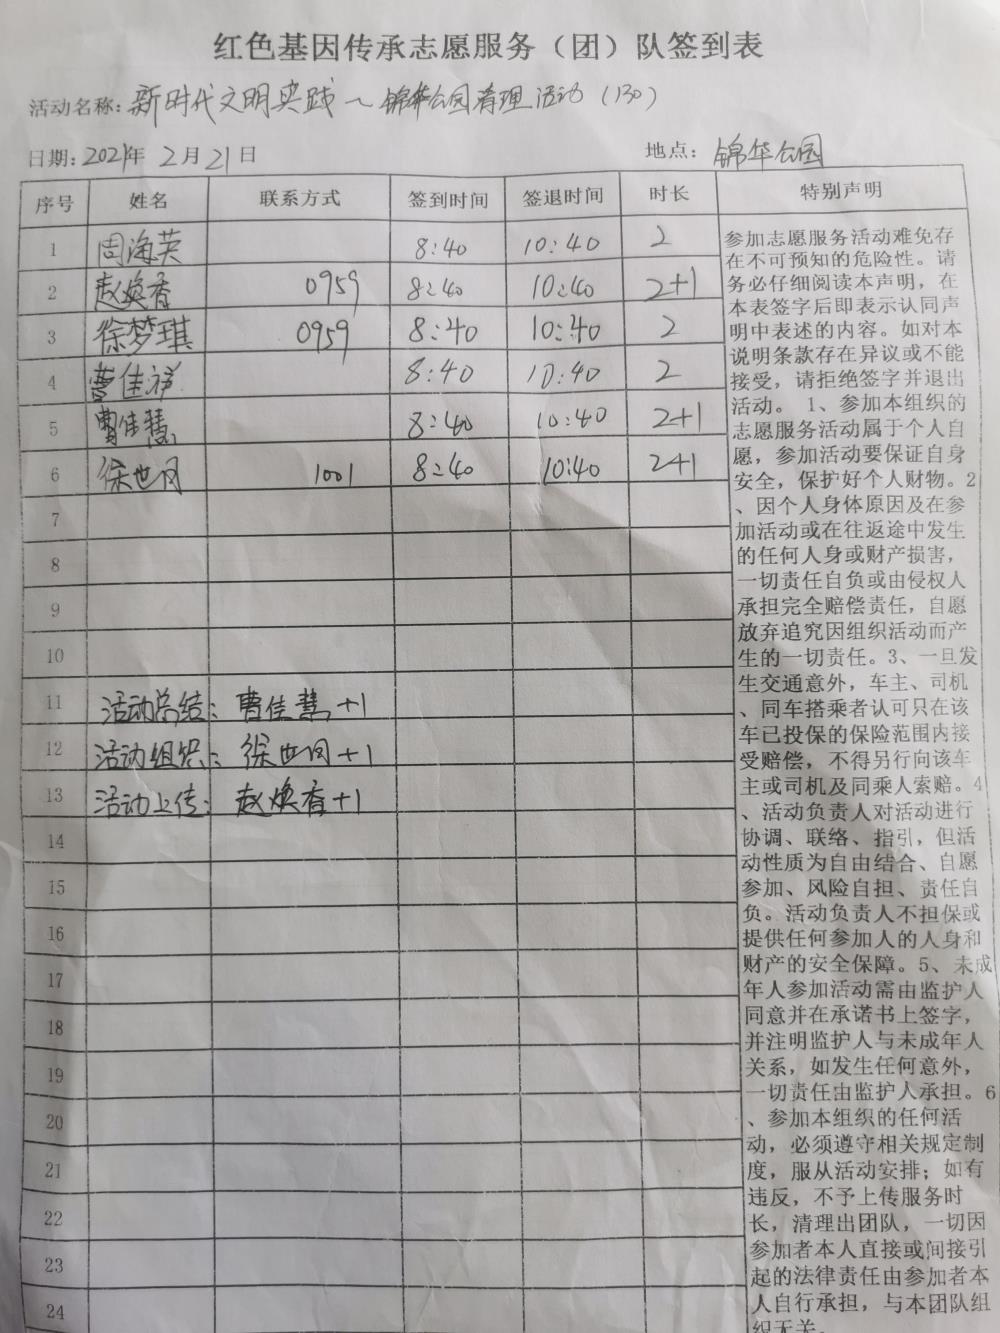 红色基因传承志愿服务（团）队签到表
活动名称：新时代文明实践～锦华公园清理活动（130）
日期：2021年 2月21日 地点：锦华公园
序号 姓名 联系方式 签到时间 签退时间 时长 特别声明
1 周海英 8:40 10:40 2
2 赵焕香 0959 8:40 10:40 2+1
3 徐梦琪 0959 8:40 10:40 2
4 曹佳祥 8:40 10:40 2
5 曹佳慧 8:40 10:40 2+1
6 徐世风 1001 8:40 10:40 2+1
7
8
9
10
11 活动总结：曹佳慧+1
12 活动组织：徐世风+1
13 活动上传：赵焕香+1
14
15
16
17
18
19
20
21
22
23
24
参加志愿服务活动难免存
在不可预知的危险性。请
务必仔细阅读本声明，在
本表签字后即表示认同声
明中表述的内容。如对本
说明条款存在异议或不能
接受，请拒绝签字并退出
活动。 1、参加本组织的
志愿服务活动属于个人自
愿，参加活动要保证自身
安全，保护好个人财物。2
、因个人身体原因及在参
加活动或在往返途中发生
的任何人身或财产损害，
一切责任自负或由侵权人
承担完全赔偿责任，自愿
放弃追究因组织活动而产
生的一切责任。3、一旦发
生交通意外，车主、司机
、同车搭乘者认可只在该
车已投保的保险范围内接
受赔偿，不得另行向该车
主或司机及同乘人索赔。4
、活动负责人对活动进行
协调、联络、指引，但活
动性质为自由结合、自愿
参加、风险自担、责任自
负。活动负责人不担保或
提供任何参加人的人身和
财产的安全保障。5、未成
年人参加活动需由监护人
同意并在承诺书上签字，
并注明监护人与未成年人
关系，如发生任何意外，
一切责任由监护人承担。6
、参加本组织的任何活
动，必须遵守相关规定制
度，服从活动安排；如有
违反，不予上传服务时
长，清理出团队，一切因
参加者本人直接或间接引
起的法律责任由参加者本
人自行承担，与本团队组
织无关。